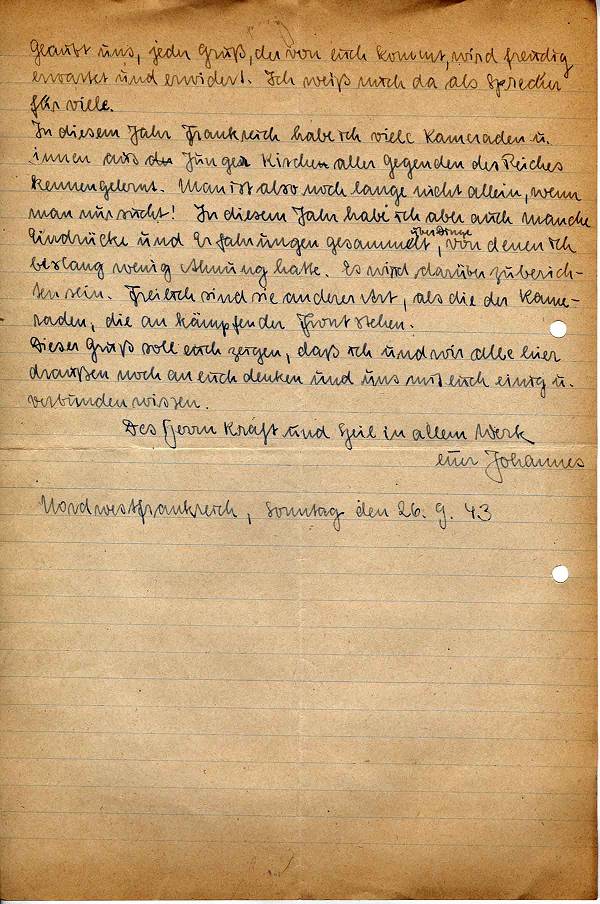 Glaubt uns, jeder Gruß, der von euch kommt, wird freudig
erwartet und erwidert. Ich weiß mich da als Sprecher
für viele.
In diesem Jahr Frankreich habe ich viele Kameraden u.
innen aus der Jungen Kirche aller Gegenden des Reiches
kennengelernt. Man ist also noch lange nicht allein, wenn
man nur sucht! In diesem Jahr habe ich aber auch manche
über Dinge
Eindrücke und Erfahrungen gesammelt, von denen ich
bislang wenig Ahnung hatte. Es wird darüber zu berich-
ten sein. Freilich sind sie anderer Art, als die der Kame-
raden, die an kämpfender Front stehen.
Dieser Gruß soll euch zeigen, daß ich und wir alle hier
draußen noch an euch denken und uns mit euch einig u.
verbunden wissen.
Des Herrn Kraft und Heil in allem Werk
euer Johannes
Nordwestfrankreich, Sonntag den 26. 9. 43